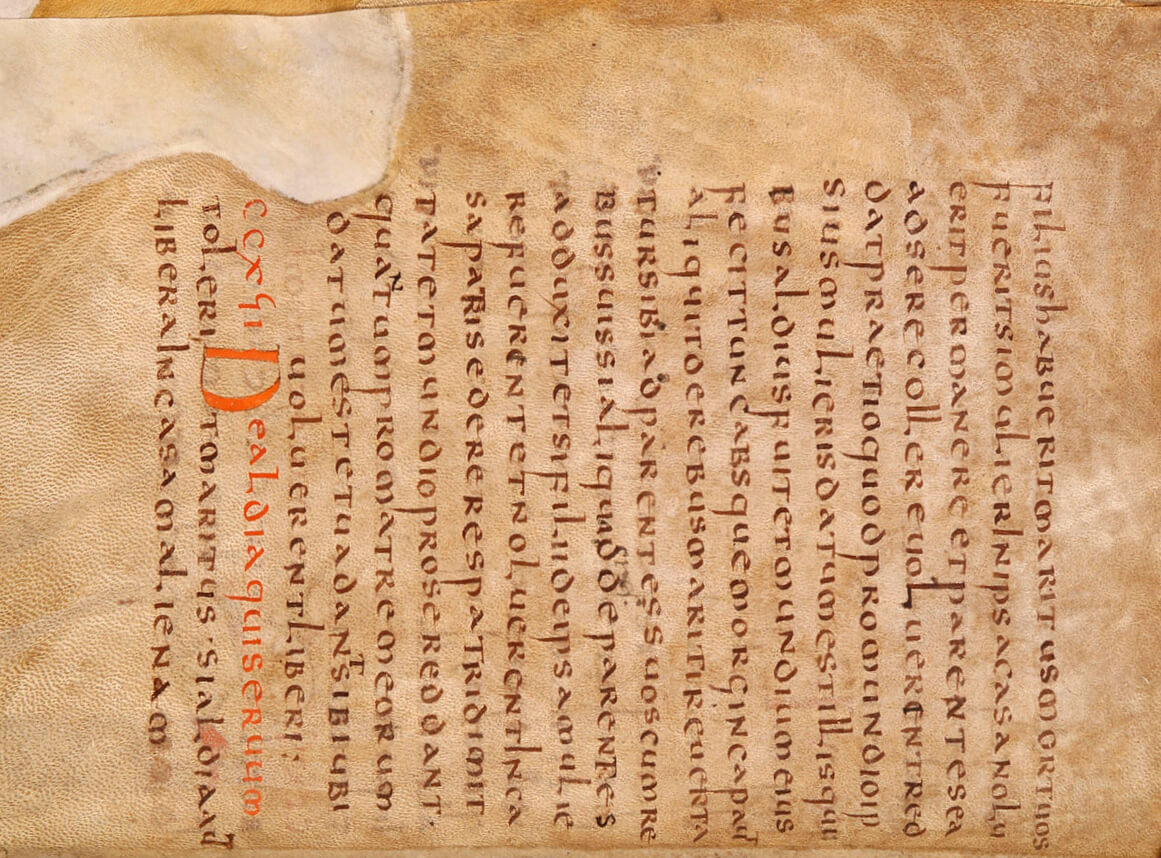 filius habuerit maritus mortuos
fuerit si mulier in ipsa casa nolu
erit permanere et parentes ea
ad se recollere uoluerent red
dat praetio quod pro mundio ip
sius mulieris datum est illis qui
bus aldius fuit et mundium eius
fecit tunc absque morgincap aut
aliquito e rebus mariti reuerta
tur sibi ad parentes suos cum re
bus suis si aliquid de parentes
adduxit et si filii de ipsa mulie
re fuerent et noluerent in ca
sa patris edere res patri dimit
tat et mundio pro se reddant·
quantum pro matrem eorum
datum est et uadant sibi ubi
uoluerent liberi;
CCXVI De aldia qui seruum
tolerit maritus · si aldia aut
libera in casam alienam